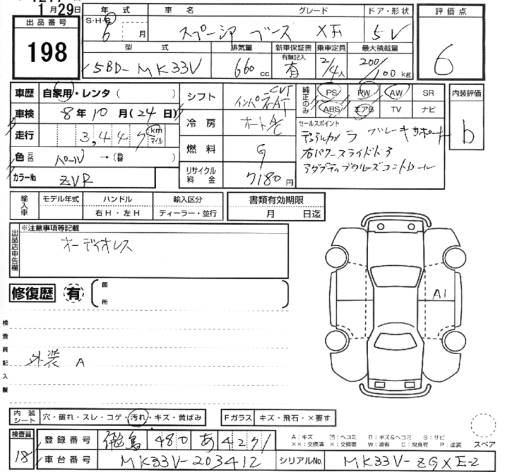 1月29日
出品番号
198
年式 車名 グレード ドア・形状 評価点
S・H・R
6 月 スペーシア ベース XF 5V
型式 排気量 新車保証書 乗車定員 最大積載量
5BD-MK33V 660 cc 有無記入 有 2/4人 200/100kg
6
車歴 自家用・レンタ シフト CVT インパネAT
純正のみ PS PW AW SR
ABS エアB TV ナビ
内装評価
b
車検 8年10月(24日)
冷房 オートAC
セールスポイント
デュアルカメラ ブレーキサポート
走行 3,449 km マイル
燃料 G
右パワースライドドア
色 パール →(替)
リサイクル料金 7180円
アダプティブクルーズコントロール
カラーNo. ZVR
輸入車 モデル年式 ハンドル 輸入区分 書類有効期限
右H・左H ディーラー・並行 月 日迄
出品店申告欄 ※注意事項等記載
オーディオレス
修復歴 有 箇所
A1
検査員記入欄
外装 A
内装シート 穴・破れ・スレ・コゲ・汚れ・キズ・黄ばみ Fガラス キズ・飛石・×要す スペア
検査員
18
登録番号 480 あ 4271
車台番号 MK33V-203412 シリアルNo. MK33V-ZGXE-2